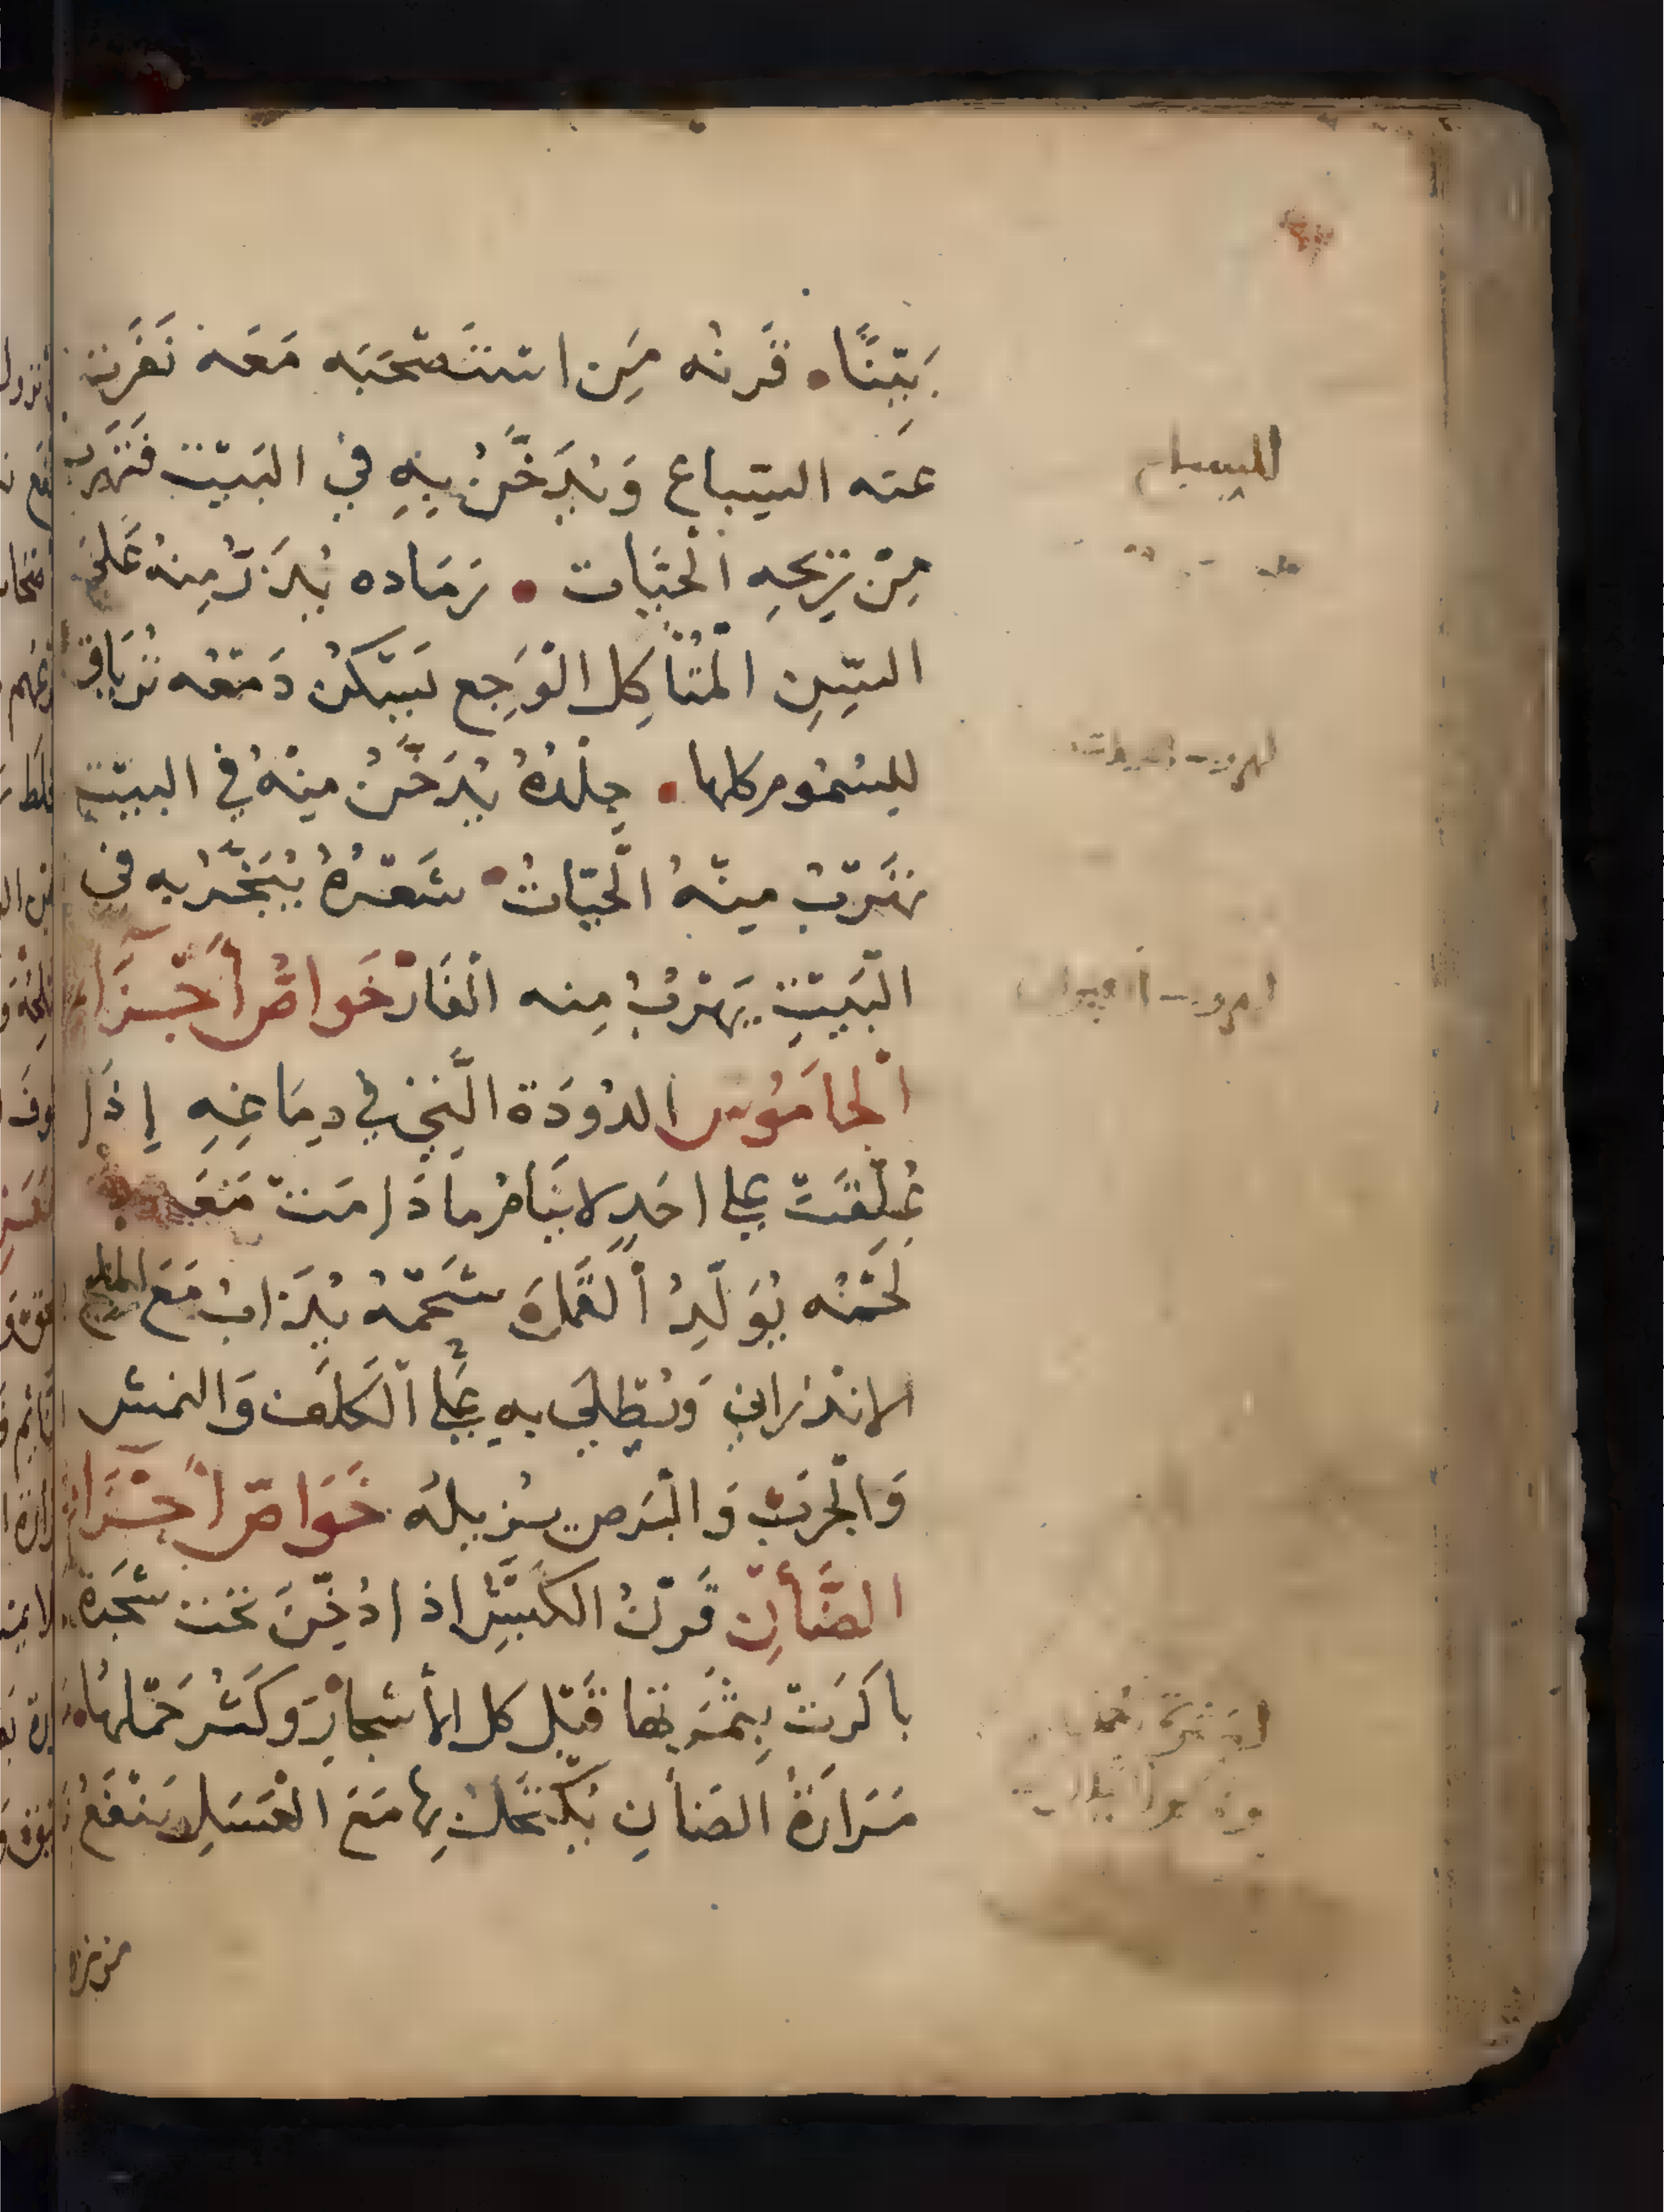 بَيِّنًا • قَرنُه مَن اسْتَصْحَبَه مَعَه نَفَرت
عنَه السِّباع وَيُدَخَّنُ بِهِ في البَيْت فَتَهرب
مِنْ رِيحِهِ الْحَيَّات • رَمَاده يُذَرُّ مِنهُ عَلى
السِّنِ الْمُتأكِل الْوَجِع يَسْكُنُ دَمْعُه تُرياق
للسُمُوم كلها • جِلْدُهُ يُدَخَّنُ مِنْهُ في البيْت
تهَربُ مِنْهُ الْحَيَّاتُ • شَعْرُهُ يُبَخَّرُ بِه في
الْبَيْتِ يَهْرُبُ مِنه الْفَار خَواصُّ أَجْزَاء
الْجَامُوس الدُودَة الَّتِي في دِمَاغِهِ إِذَا
عُلِّقَتْ علي احَدٍ لا يَنَامُ ما دَامَتْ مَعَه
لَحْمُه يُوَلِّدُ الْقَمْلَ شَحْمُهُ يُذَابُ مَعَ الملح
الانْدَرَانِي وَيُطْلَى بِهِ عَلَي الْكَلَفَ وَالنمش
وَالْجَرَبْ وَالْبَرص يُزيلُه خَوَاصّ أَجْزَاء
الضَّأْنِ قَرْنُ الكَبْش اذا دُفِنَ تحْت شَجَرة
باكَرَتْ بِثَمَرتها قَبْل كل الأَشجار وَكَثُر حَمْلهَا •
مَرَارَةُ الضَأنِ يُكْتَحَلُ بِها مَعَ الْعَسَلِ يَنْفَعُ
للسباع
لهروب الحيات